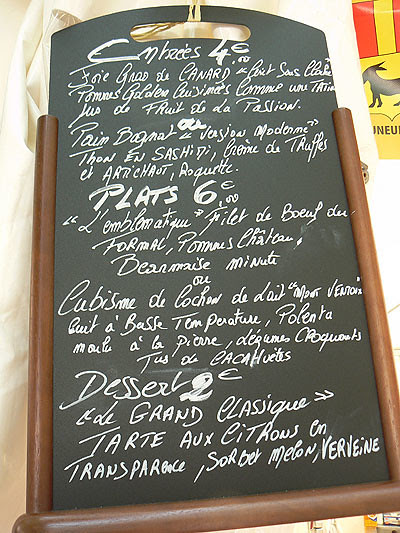 Entrées 4,00 €
Foie Gras de CANARD "Cuit Sous Cloche"
Pommes Golden Cuisinées Comme une TATIN
Jus de Fruit de la Passion.
ou
Pain Bagnat "Version Moderne"
THON EN SASHIMI, Crème de Truffes
et ARTICHAUT, Roquette.
PLATS 6,00 €
"L'emblématique" Filet de Boeuf du
FORMAL, Pommes Château,
Bearnaise minute
ou
Cubisme de Cochon de Lait "MONT VENTOUX"
Cuit à Basse Température, Polenta
moulu à la Pierre, légumes Croquants
Jus de CACAHUETES
Dessert 2 €
"Le GRAND CLASSIQUE"
TARTE AUX CITRONS en
TRANSPARENCE, SORBET MELON, VERVEINE
UNEUR